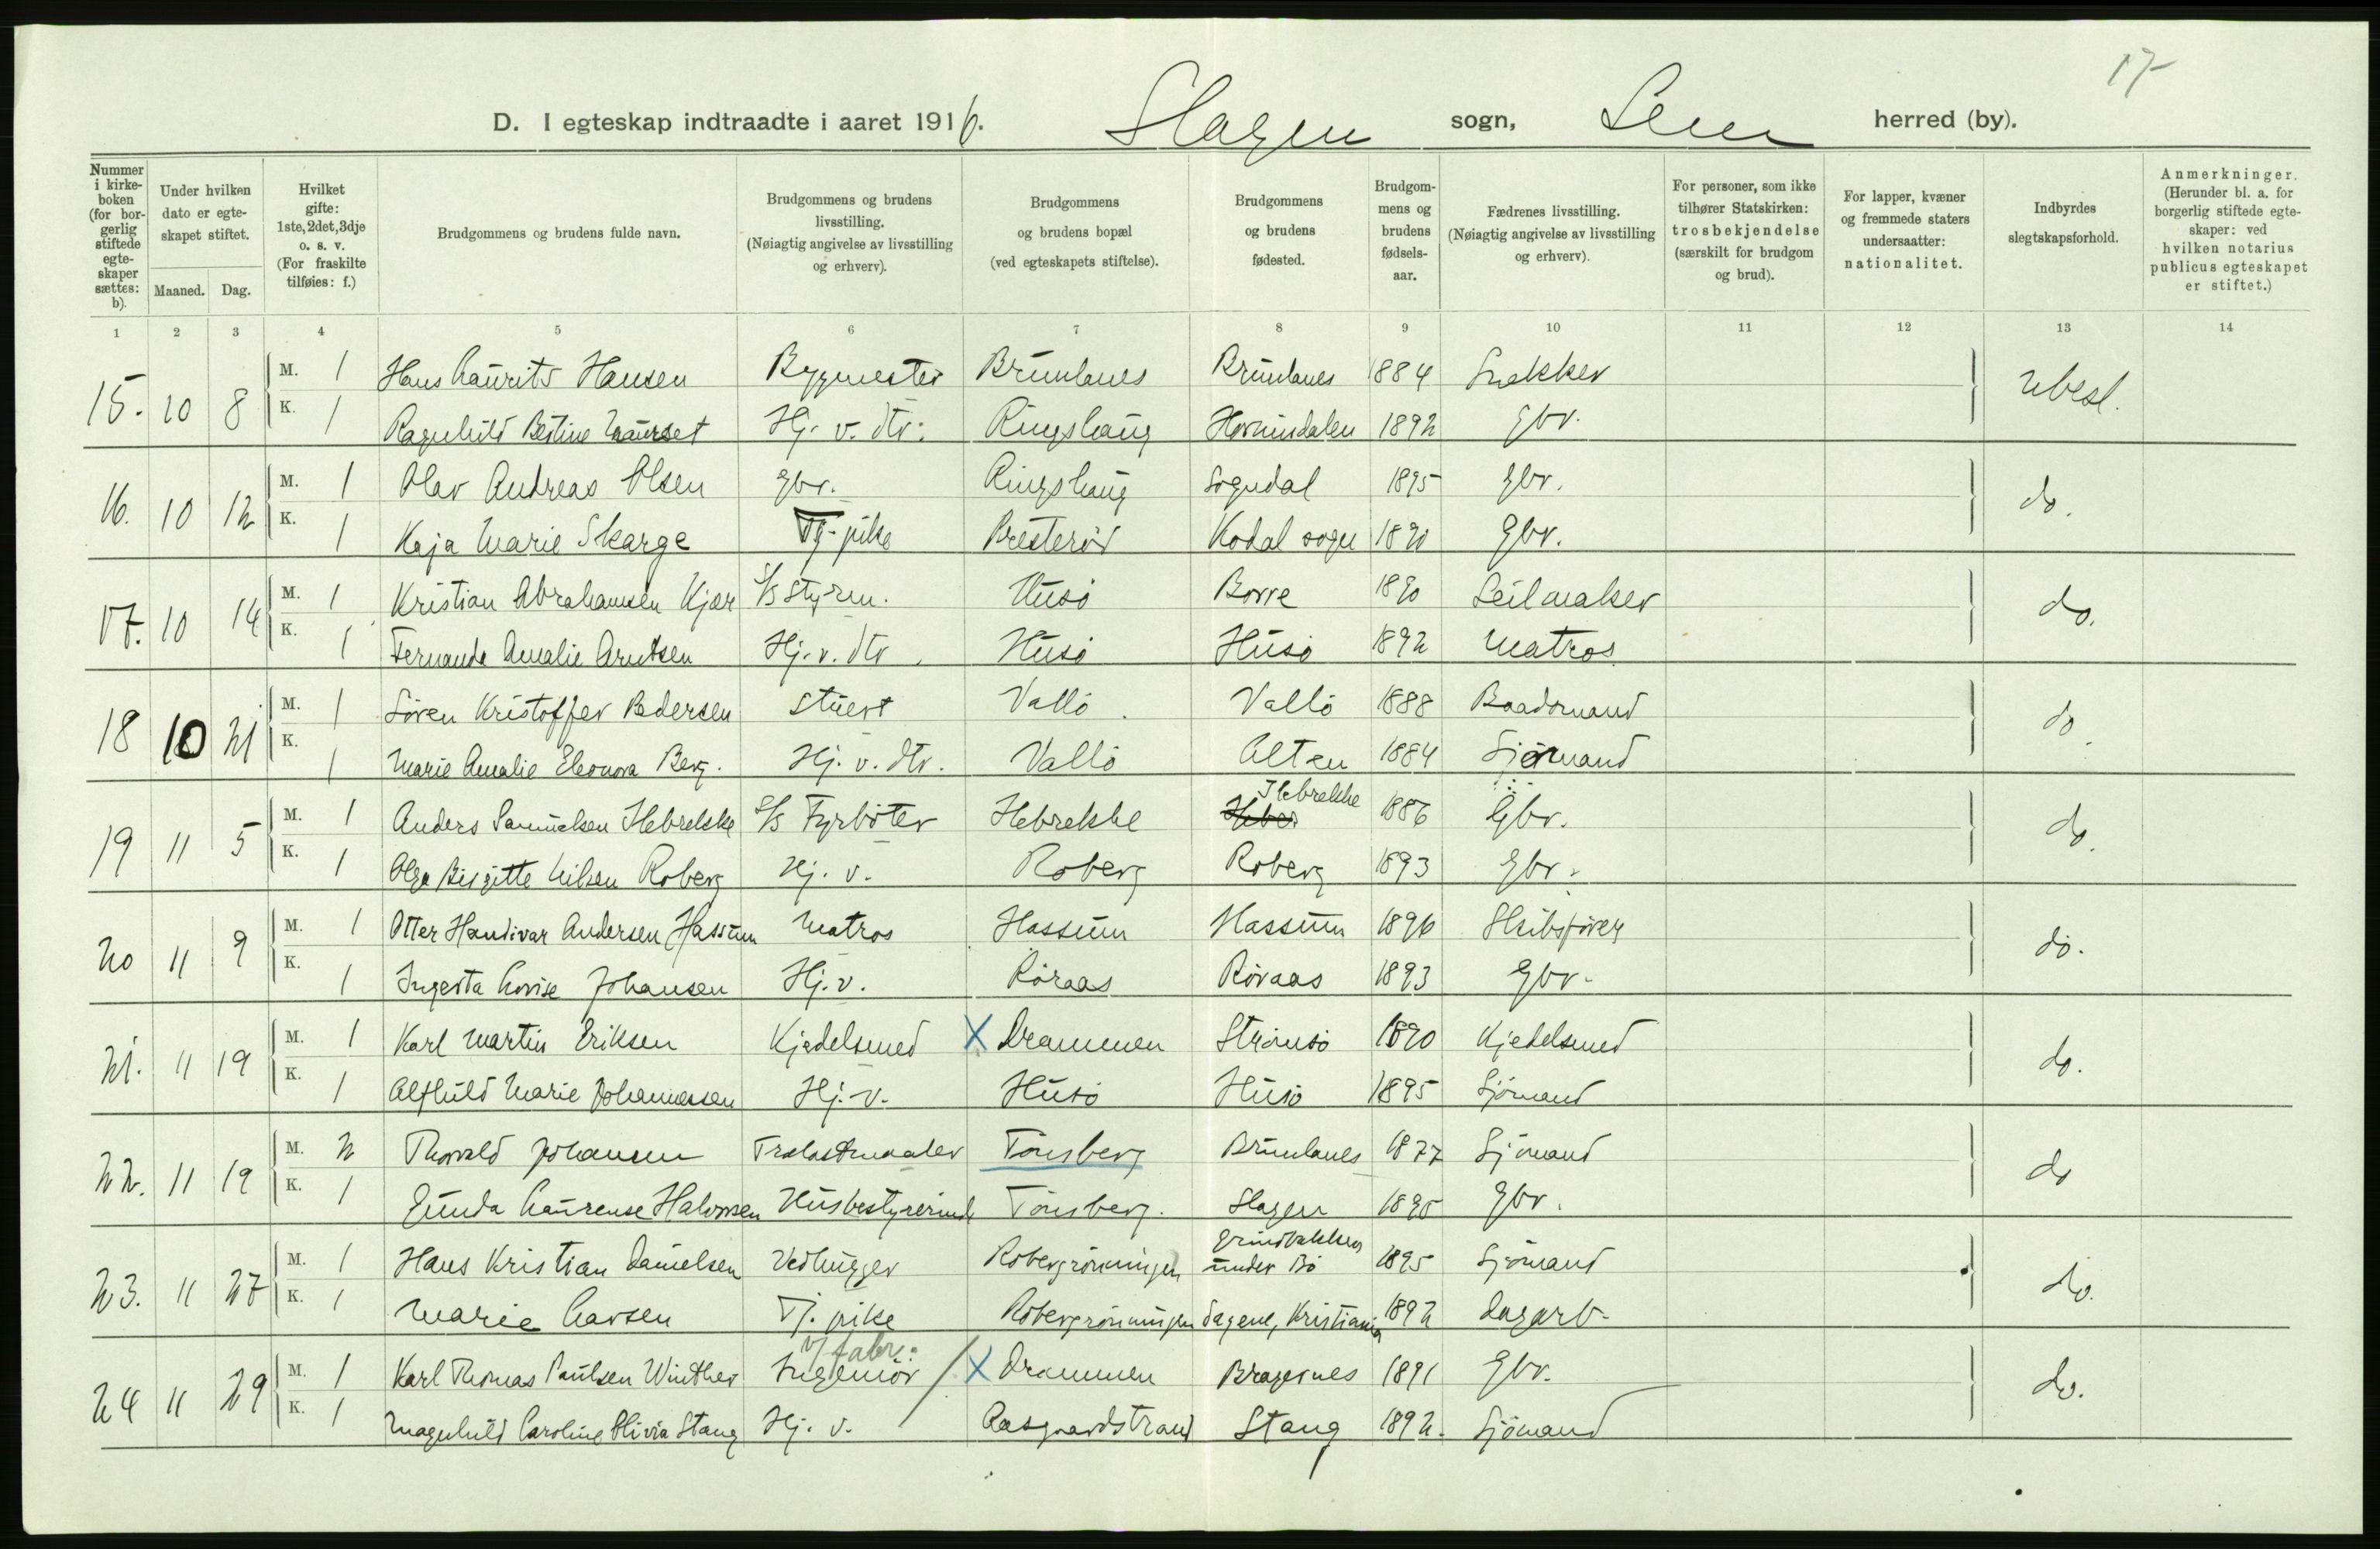 17
D. I egteskap indtraadte i aaret 1916. Slagen sogn, Sem herred (by).
Nummer i kirke-boken (for bor-gerlig stiftede egte-skaper sættes: b).
Under hvilken dato er egte-skapet stiftet.
Maaned. Dag.
Hvilket gifte: 1ste, 2det, 3dje o. s. v. (For fraskilte tilføies: f.)
Brudgommens og brudens fulde navn.
Brudgommens og brudens livsstilling. (Nøiagtig angivelse av livsstilling og erhverv).
Brudgommens og brudens bopæl (ved egteskapets stiftelse).
Brudgommens og brudens fødested.
Brudgom-mens og brudens fødsels-aar.
Fædrenes livsstilling. (Nøiagtig angivelse av livsstilling og erhverv).
For personer, som ikke tilhører Statskirken: trosbekjendelse (særskilt for brudgom og brud).
For lapper, kvæner og fremmede staters undersaatter: nationalitet.
Indbyrdes slegtskapsforhold.
Anmerkninger. (Herunder bl. a. for borgerlig stiftede egte-skaper: ved hvilken notarius publicus egteskapet er stiftet.)
1 2 3 4 5 6 7 8 9 10 11 12 13 14
15. 10 8 M. 1 Hans Laurits Hansen Byggmester Brunlanes Brunlanes 1884 Snekker ubesl.
K. 1 Ragnhild Bertine Maurset Hj. v. dtr. Ringshaug Hornindalen 1892 Gbr.
16. 10 12 M. 1 Olav Andreas Olsen Gbr. Ringshaug Sogndal 1895 Gbr. do.
K. 1 Kaja Marie Skarge Tj. pike Presterød Kodal sogn 1890 Gbr.
17. 10 14 M. 1 Kristian Abrahamsen Kjær S/S Styrm. Husö Borre 1890 Seilmaker do.
K. 1 Fernanda Amalie Arntsen Hj. v. dtr. Husö Husö 1892 Matros
18 10 21 M. 1 Sören Kristoffer Pedersen Stuert Vallö. Vallö 1888 Baadsmand do.
K. 1 Marie Amalie Eleonora Berg. Hj. v. dtr. Vallö Alten 1884 Sjömand
19 11 5 M. 1 Anders Samuelsen Ilebrekke S/S Fyrböter Ilebrekke Ilebrekke 1886 Gbr. do.
K. 1 Olga Birgitte Nilsen Roberg Hj. v. Roberg Roberg 1893 Gbr.
20 11 9 M. 1 Otter Handivar Andersen Hassum Matros Hassum Hassum 1896 Skibsförer do.
K. 1 Ingerta Lovise Johansen Hj. v. Röraas Röraas 1893 Gbr.
21. 11 19 M. 1 Karl Martin Eriksen Kjedelsmed X Drammen Strömsö 1890 Kjedelsmed do.
K. 1 Alfhild Marie Johannessen Hj. v. Husö Husö 1895 Sjömand
22. 11 19 M. 2 Thorvald Johansen Trælastmaaler Tönsberg Brunlanes 1877 Sjömand do
K. 1 Gunda Laurense Halvorsen Husbestyrerinde Tönsberg. Slagen 1895 Gbr.
23. 11 27 M. 1 Hans Kristian Danielsen Vedhugger Robergrönningen Grindbakken under Bö 1895 Sjömand do.
K. 1 Marie Larsen Tj. pike Robergrönningen Sagene, Kristiania 1892 Dagarb.
24 11 29 M. 1 Karl Thomas Paulsen Winther Ingeniör v/ fabr. X Drammen Bragernes 1891 Gbr. do.
K. 1 Magnhild Caroline Olivia Stang Hj. v. Aasgaardstrand Stang 1892. Sjömand